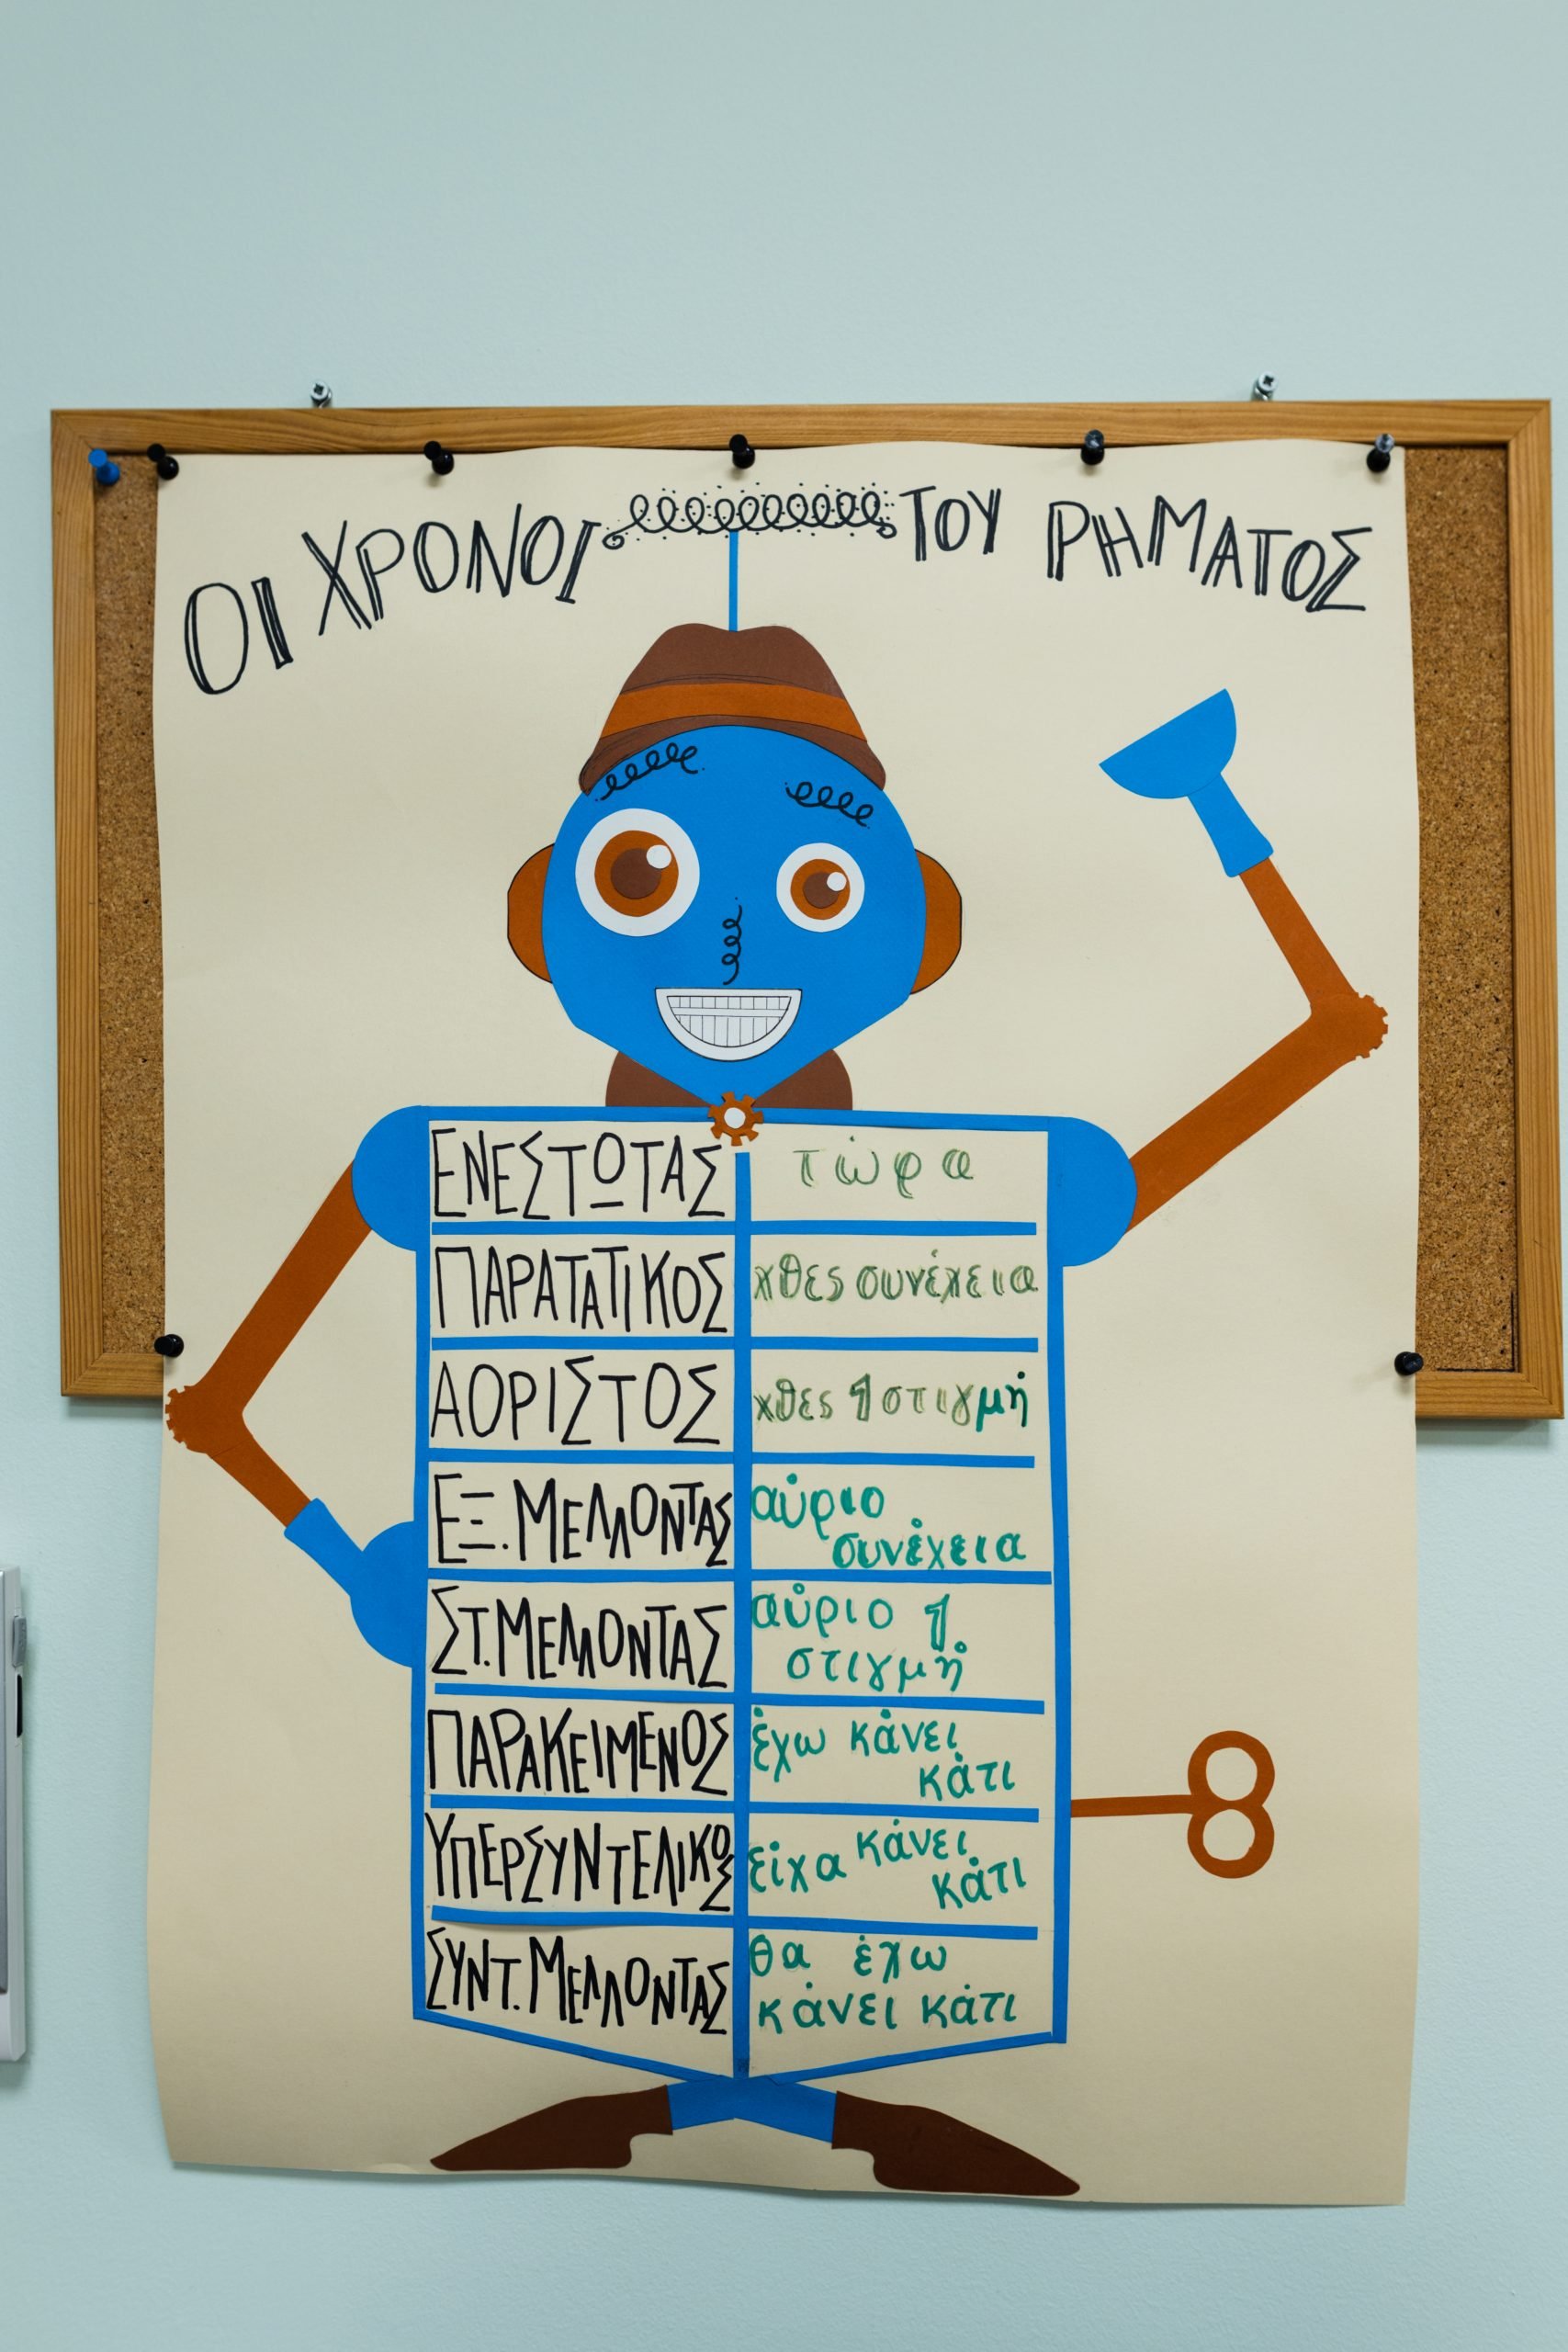 ΟΙ ΧΡΟΝΟΙ ΤΟΥ ΡΗΜΑΤΟΣ
ΕΝΕΣΤΩΤΑΣ τώρα
ΠΑΡΑΤΑΤΙΚΟΣ χθες συνέχεια
ΑΟΡΙΣΤΟΣ χθες 1 στιγμή
ΕΞ. ΜΕΛΛΟΝΤΑΣ αύριο
συνέχεια
ΣΤ. ΜΕΛΛΟΝΤΑΣ αύριο 1
στιγμή
ΠΑΡΑΚΕΙΜΕΝΟΣ έχω κάνει
κάτι
ΥΠΕΡΣΥΝΤΕΛΙΚΟΣ είχα κάνει
κάτι
ΣΥΝΤ. ΜΕΛΛΟΝΤΑΣ θα έχω
κάνει κάτι